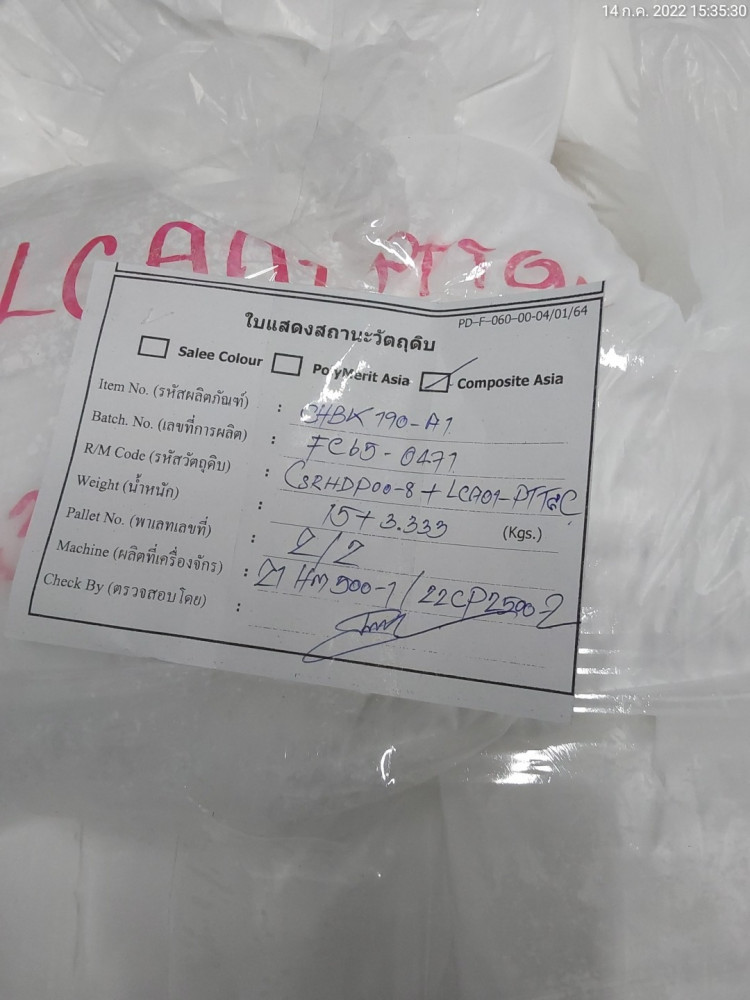 14 ก.ค. 2022 15:35:30
LCA01 PTTGC
PD-F-060-00-04/01/64
ใบแสดงสถานะวัตถุดิบ
Salee Colour PolyMerit Asia Composite Asia
Item No. (รหัสผลิตภัณฑ์) : CHBK790-A1
Batch. No. (เลขที่การผลิต) : FC65-0471
R/M Code (รหัสวัตถุดิบ) : CSRHDP00-8 + LCA01-PTTGC
Weight (น้ำหนัก) : 15+3.333 (Kgs.)
Pallet No. (พาเลทเลขที่) : 2/2
Machine (ผลิตที่เครื่องจักร) : 21HM500-1/22CP2500-2
Check By (ตรวจสอบโดย) :